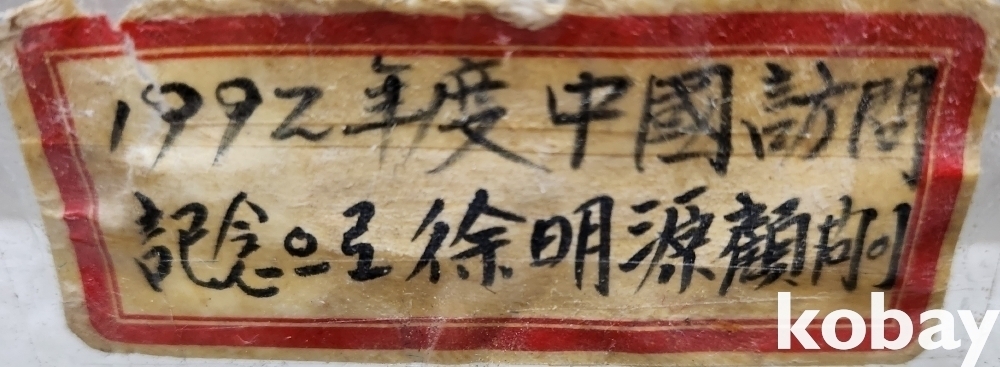 1992年度中國訪問
記念으로徐明源顧問
kobay